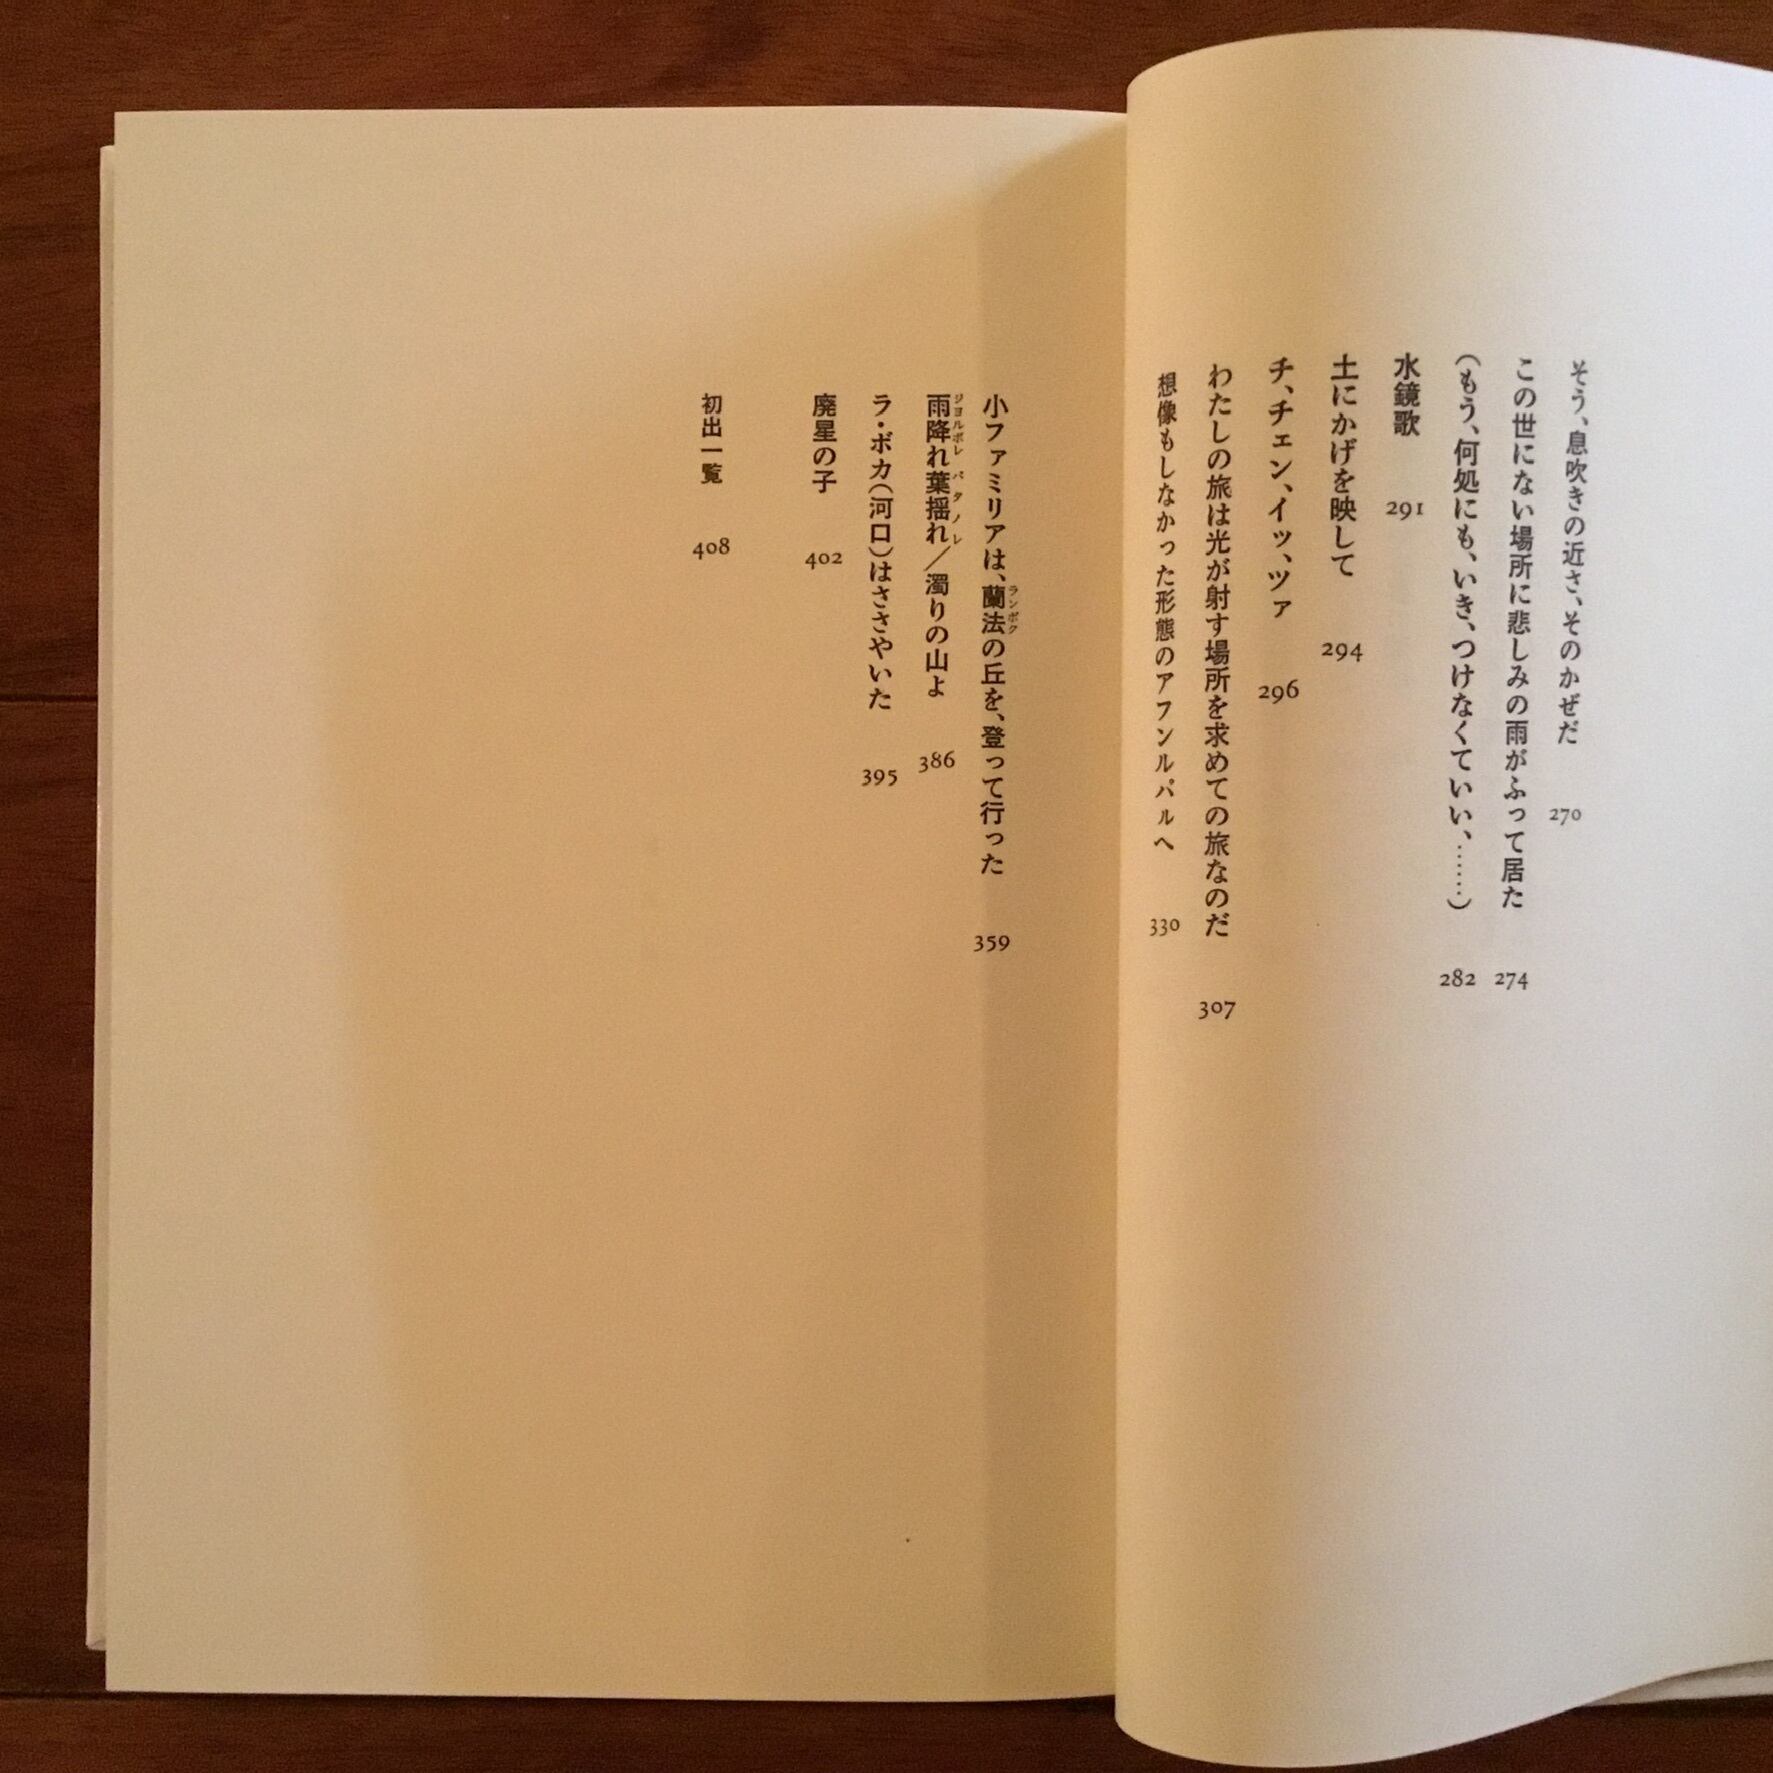 そう、息吹きの近さ、そのかぜだ 270
この世にない場所に悲しみの雨がふって居た 274
(もう、何処にも、いき、つけなくていい、……) 282
水鏡歌 291
土にかげを映して 294
チ、チェン、イッ、ツァ 296
わたしの旅は光が射す場所を求めての旅なのだ 307
想像もしなかった形態のアフンルパルへ 330
小ファミリアは、蘭法の丘を、登って行った 359
ランボク
雨降れ葉揺れ／濁りの山よ 386
ジヨルボレ パタノレ
ラ・ボカ(河口)はささやいた 395
廃星の子 402
初出一覧 408